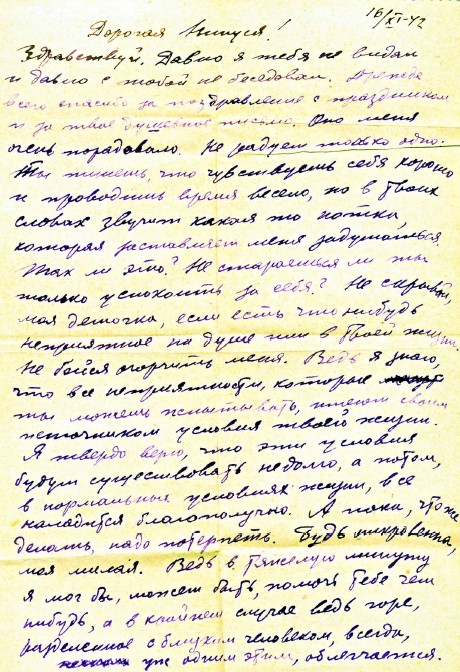 16/XI-42
Дорогая Нинуся!
Здравствуй. Давно я тебя не видал
и давно с тобой не беседовал. Прежде
всего спасибо за поздравление с праздником
и за твое душевное письмо. Оно меня
очень порадовало. Не радует только одно.
Ты пишешь, что чувствуешь себя хорошо
и проводишь время весело, но в твоих
словах звучит какая то нотка,
которая заставляет меня задуматься.
Так ли это? Не стараешься ли ты
только успокоить за себя? Не скрывай,
моя деточка, если есть что нибудь
неприятное на душе или в твоей жизни.
Не бойся огорчить меня. Ведь я знаю,
что все неприятности, которые
ты можешь испытывать, имеют своим
источником условия твоей жизни.
Я твердо верю, что эти условия
будут существовать недолго, а потом,
в нормальных условиях жизни, все
наладится благополучно. А пока, что же
делать, надо потерпеть. Будь откровенна,
моя милая. Ведь в тяжелую минуту
я мог бы, может быть, помочь тебе чем
нибудь, а в крайнем случае ведь горе,
разделенное с близким человеком, всегда,
уже одним этим, облегчается.